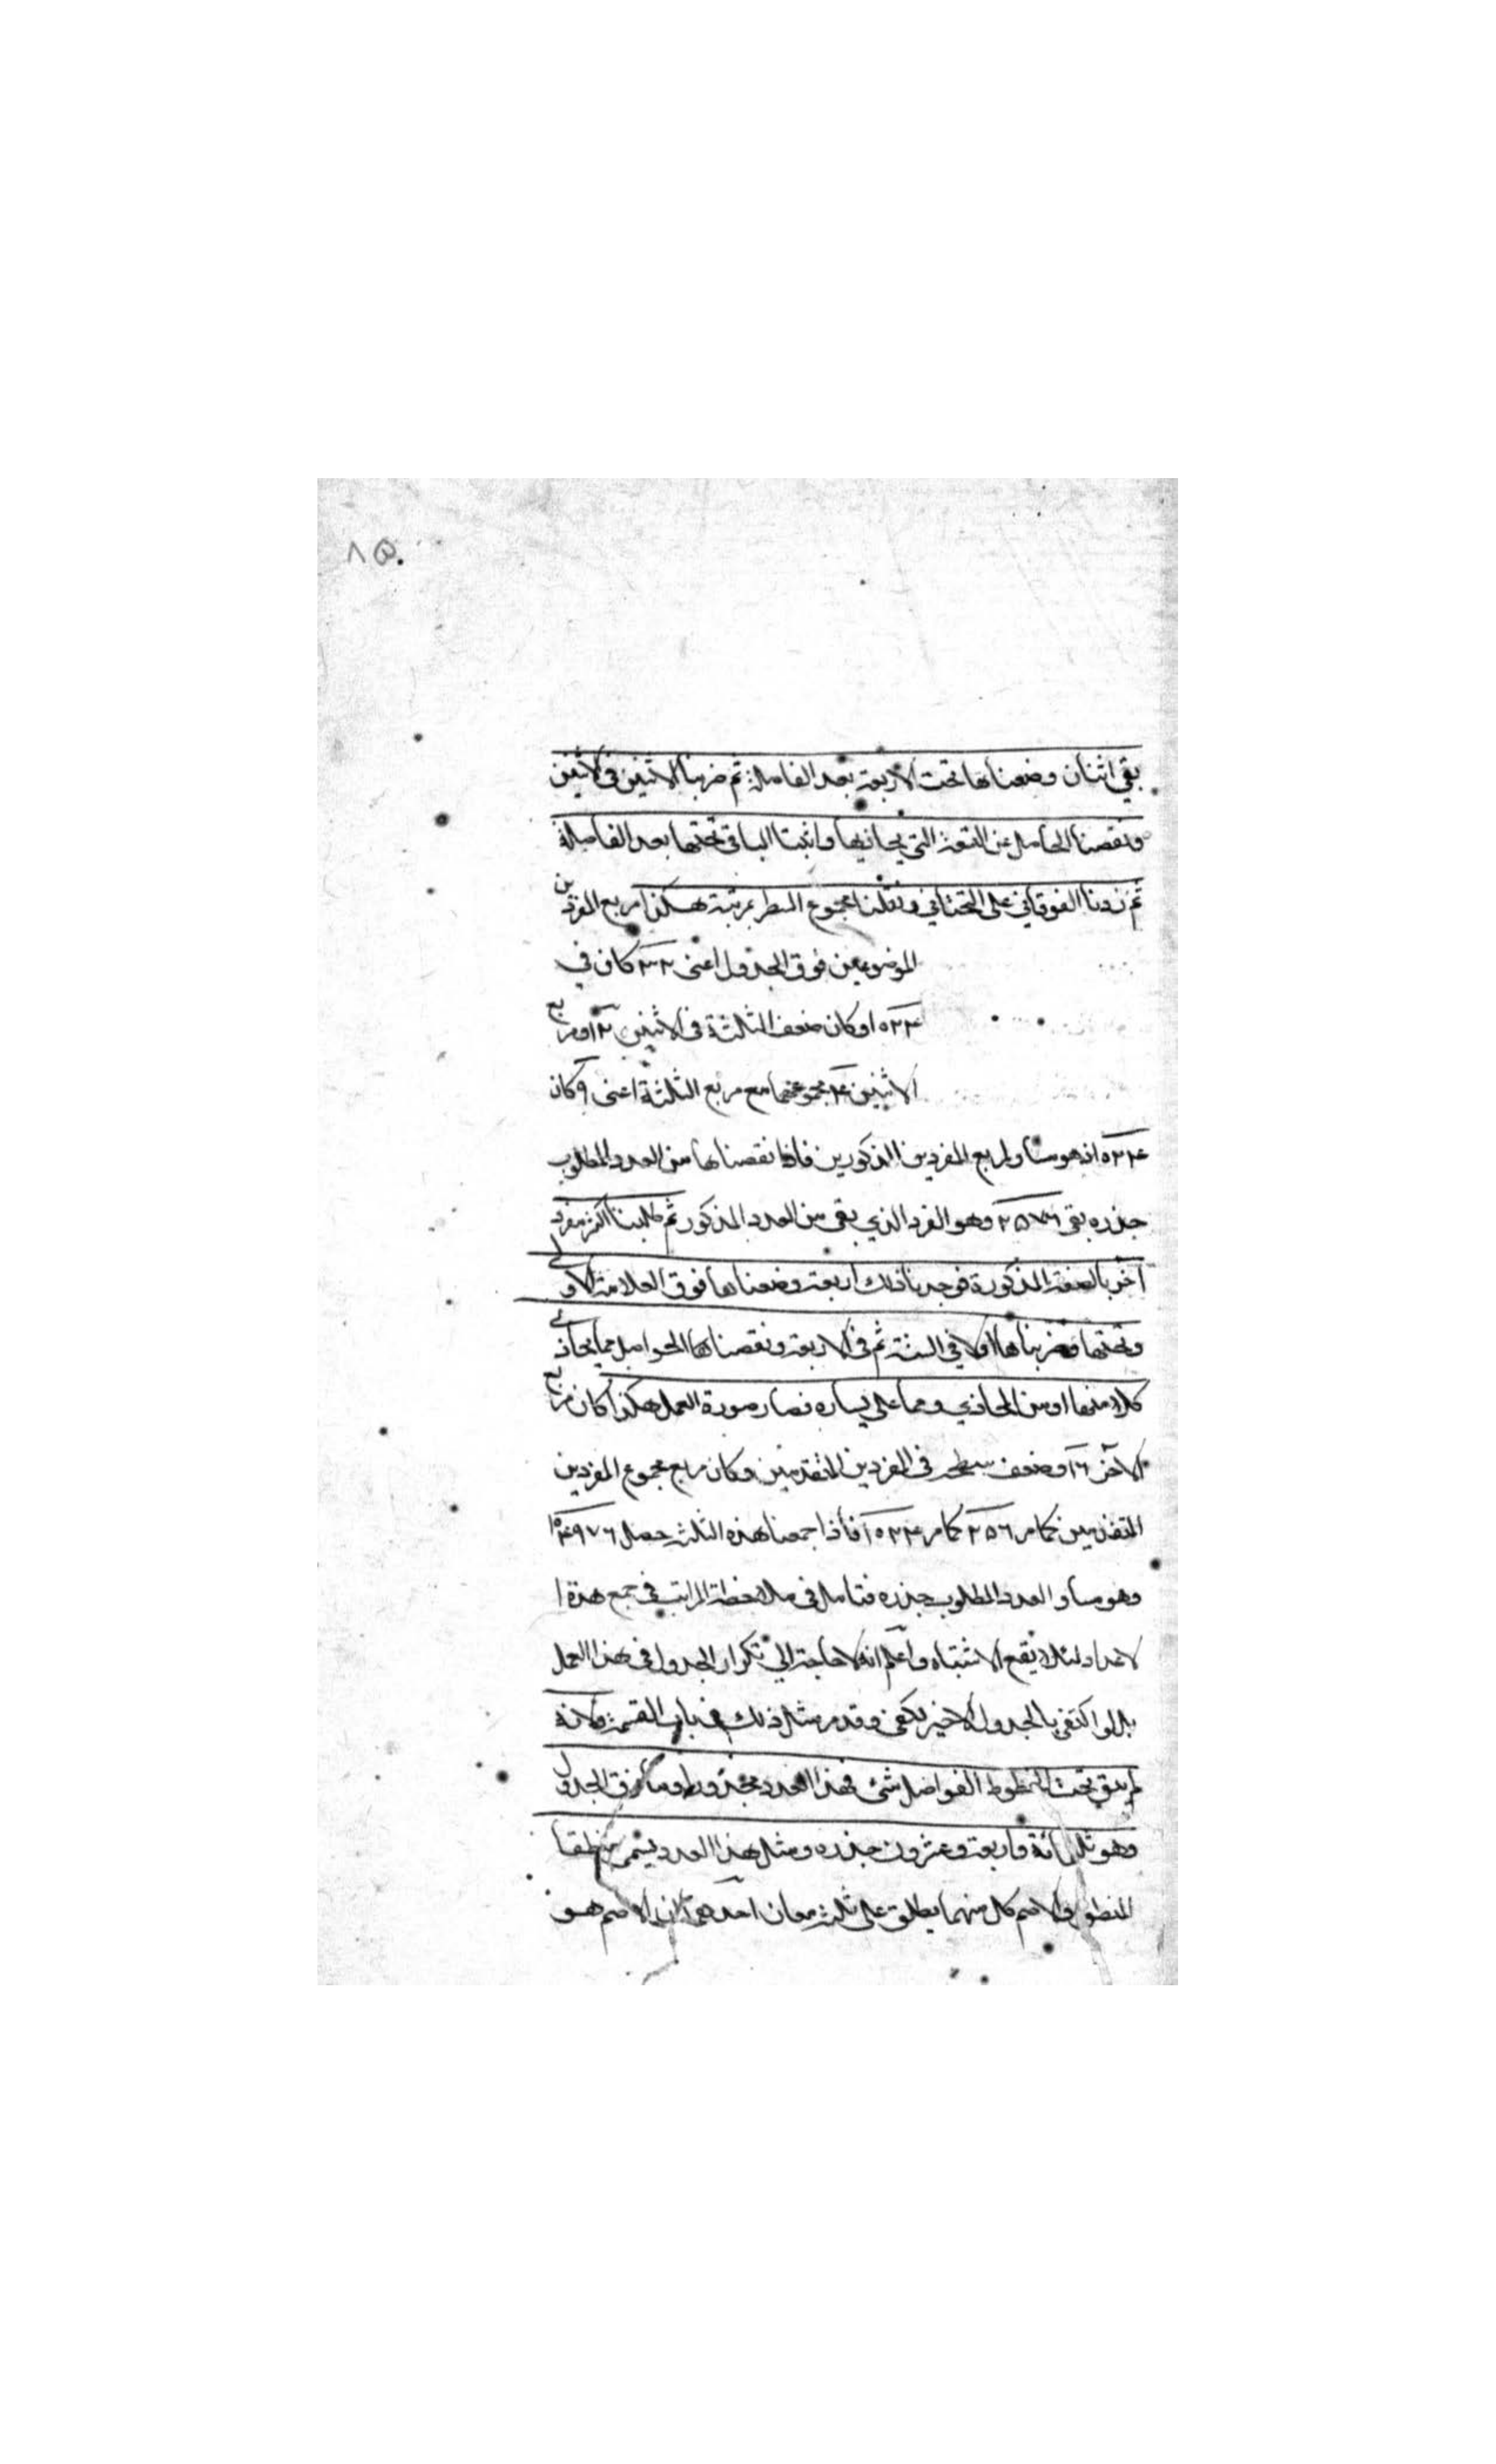 ٨٥
بقي اثنان وضعناها تحت الاربعة بعد الفاصلة ثم ضربنا الاثنين في الاثنين
ونقصنا الحاصل عن التسعة التي يحاذيها واثبتنا الباقي تحتها بعد الفاصلة
ثم زدنا الفوقاني على التحتاني ونقلنا مجموع السطر بمرتبة هكذا مربع المفردين
الموضوعين فوق الجدول اعنى ٣٢ كان في
١٠٢٤ وكان ضعف الثلثة في الاثنين ١٢ ومربع
الاثنين ٤ مجموعهما مع مربع الثلثة اعنى ٩ كان
١٠٢٤ اذ هو مساو لمربع المفردين المذكورين فاذا نقصناها من العدد المطلوب
جذره بقي ٢٥٧٦ وهو الفرد الذي بقى من العدد المذكور ثم طلبنا اكثر مفرد
آخر بالصفة المذكورة فوجدنا ذلك اربعة وضعناها فوق العلامة الاولى
وتحتها وضربناها اولا في الستة ثم في الاربعة ونقصنا الحواصل مما يحاذي
كلا منها او من المحاذي ومما على يساره فصار صورة العمل هكذا كان مربع
الآخر ١٦ وضعف سطحه في المفردين المتقدمين وكان مربع مجموع المفردين
المتقدمين كما مر ٢٥٦ كما مر فاذا جمعنا هذه الثلث حصل ١٠٤٩٧٦
وهو مساو العدد المطلوب جذره فتامل في ملاحظة المراتب في جمع هذه ا
لاعداد لئلا يقع الاشتباه واعلم انه لا حاجة الى تكرار الجدول في هذا العمل
بل لو اكتفى بالجدول الاخير يكفى وقد مر مثل ذلك في باب القسمة ولانه
لم يبق تحت الخطوط الفواصل شئ فهذا العدد مجذور وما فوق الجدول
وهو ثلثمائة واربعة وعشرون جذره ومثل هذا العدد يسمى منطقا
المنطق والاصم كل منهما يطلق على ثلث معان احدها ان الاصم هو